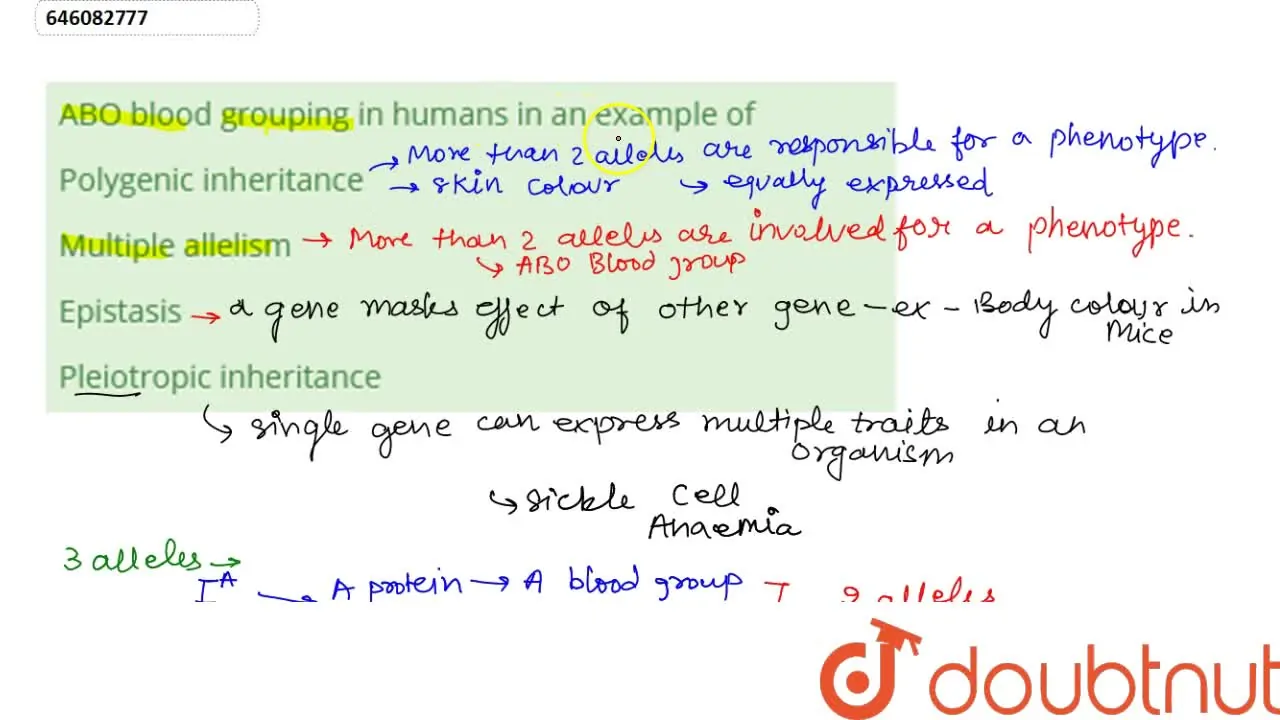 646082777
ABO blood grouping in humans in an example of
→ More than 2 alleles are responsible for a phenotype.
Polygenic inheritance → skin colour ↳ equally expressed
Multiple allelism → More than 2 alleles are involved for a phenotype.
↳ ABO Blood group
Epistasis → a gene masks effect of other gene - ex - Body colour in
Mice
Pleiotropic inheritance
↳ single gene can express multiple traits in an
organism
↳ sickle cell
Anaemia
3 alleles →
I^A → A protein → A blood group
alleles
doubtnut